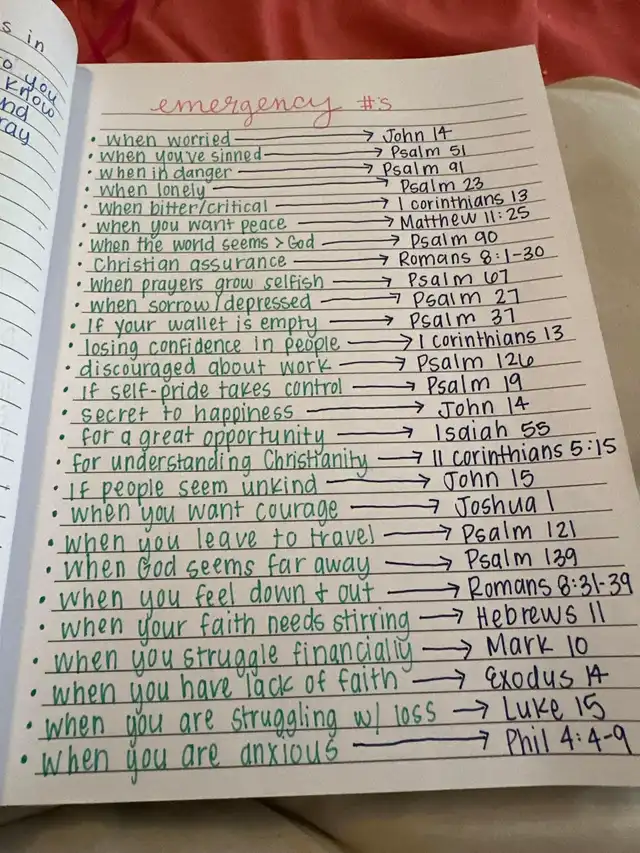 s in
o you
know
nd
ray
emergency #s
• when worried → John 14
• when you've sinned → Psalm 51
• when in danger → Psalm 91
• when lonely → Psalm 23
• when bitter/critical → 1 corinthians 13
• when you want peace → Matthew 11:25
• when the world seems > God → Psalm 90
• Christian assurance → Romans 8:1-30
• when prayers grow selfish → Psalm 67
• when sorrow/depressed → Psalm 27
• If your wallet is empty → Psalm 37
• losing confidence in people → 1 corinthians 13
• discouraged about work → Psalm 126
• if self-pride takes control → Psalm 19
• secret to happiness → John 14
• for a great opportunity → Isaiah 55
• for understanding Christianity → 11 corinthians 5:15
• if people seem unkind → John 15
• when you want courage → Joshua 1
• when you leave to travel → Psalm 121
• when God seems far away → Psalm 139
• when you feel down + out → Romans 8:31-39
• when your faith needs stirring → Hebrews 11
• when you struggle financially → Mark 10
• when you have lack of faith → Exodus 14
• when you are struggling w/ loss → Luke 15
• when you are anxious → Phil 4:4-9